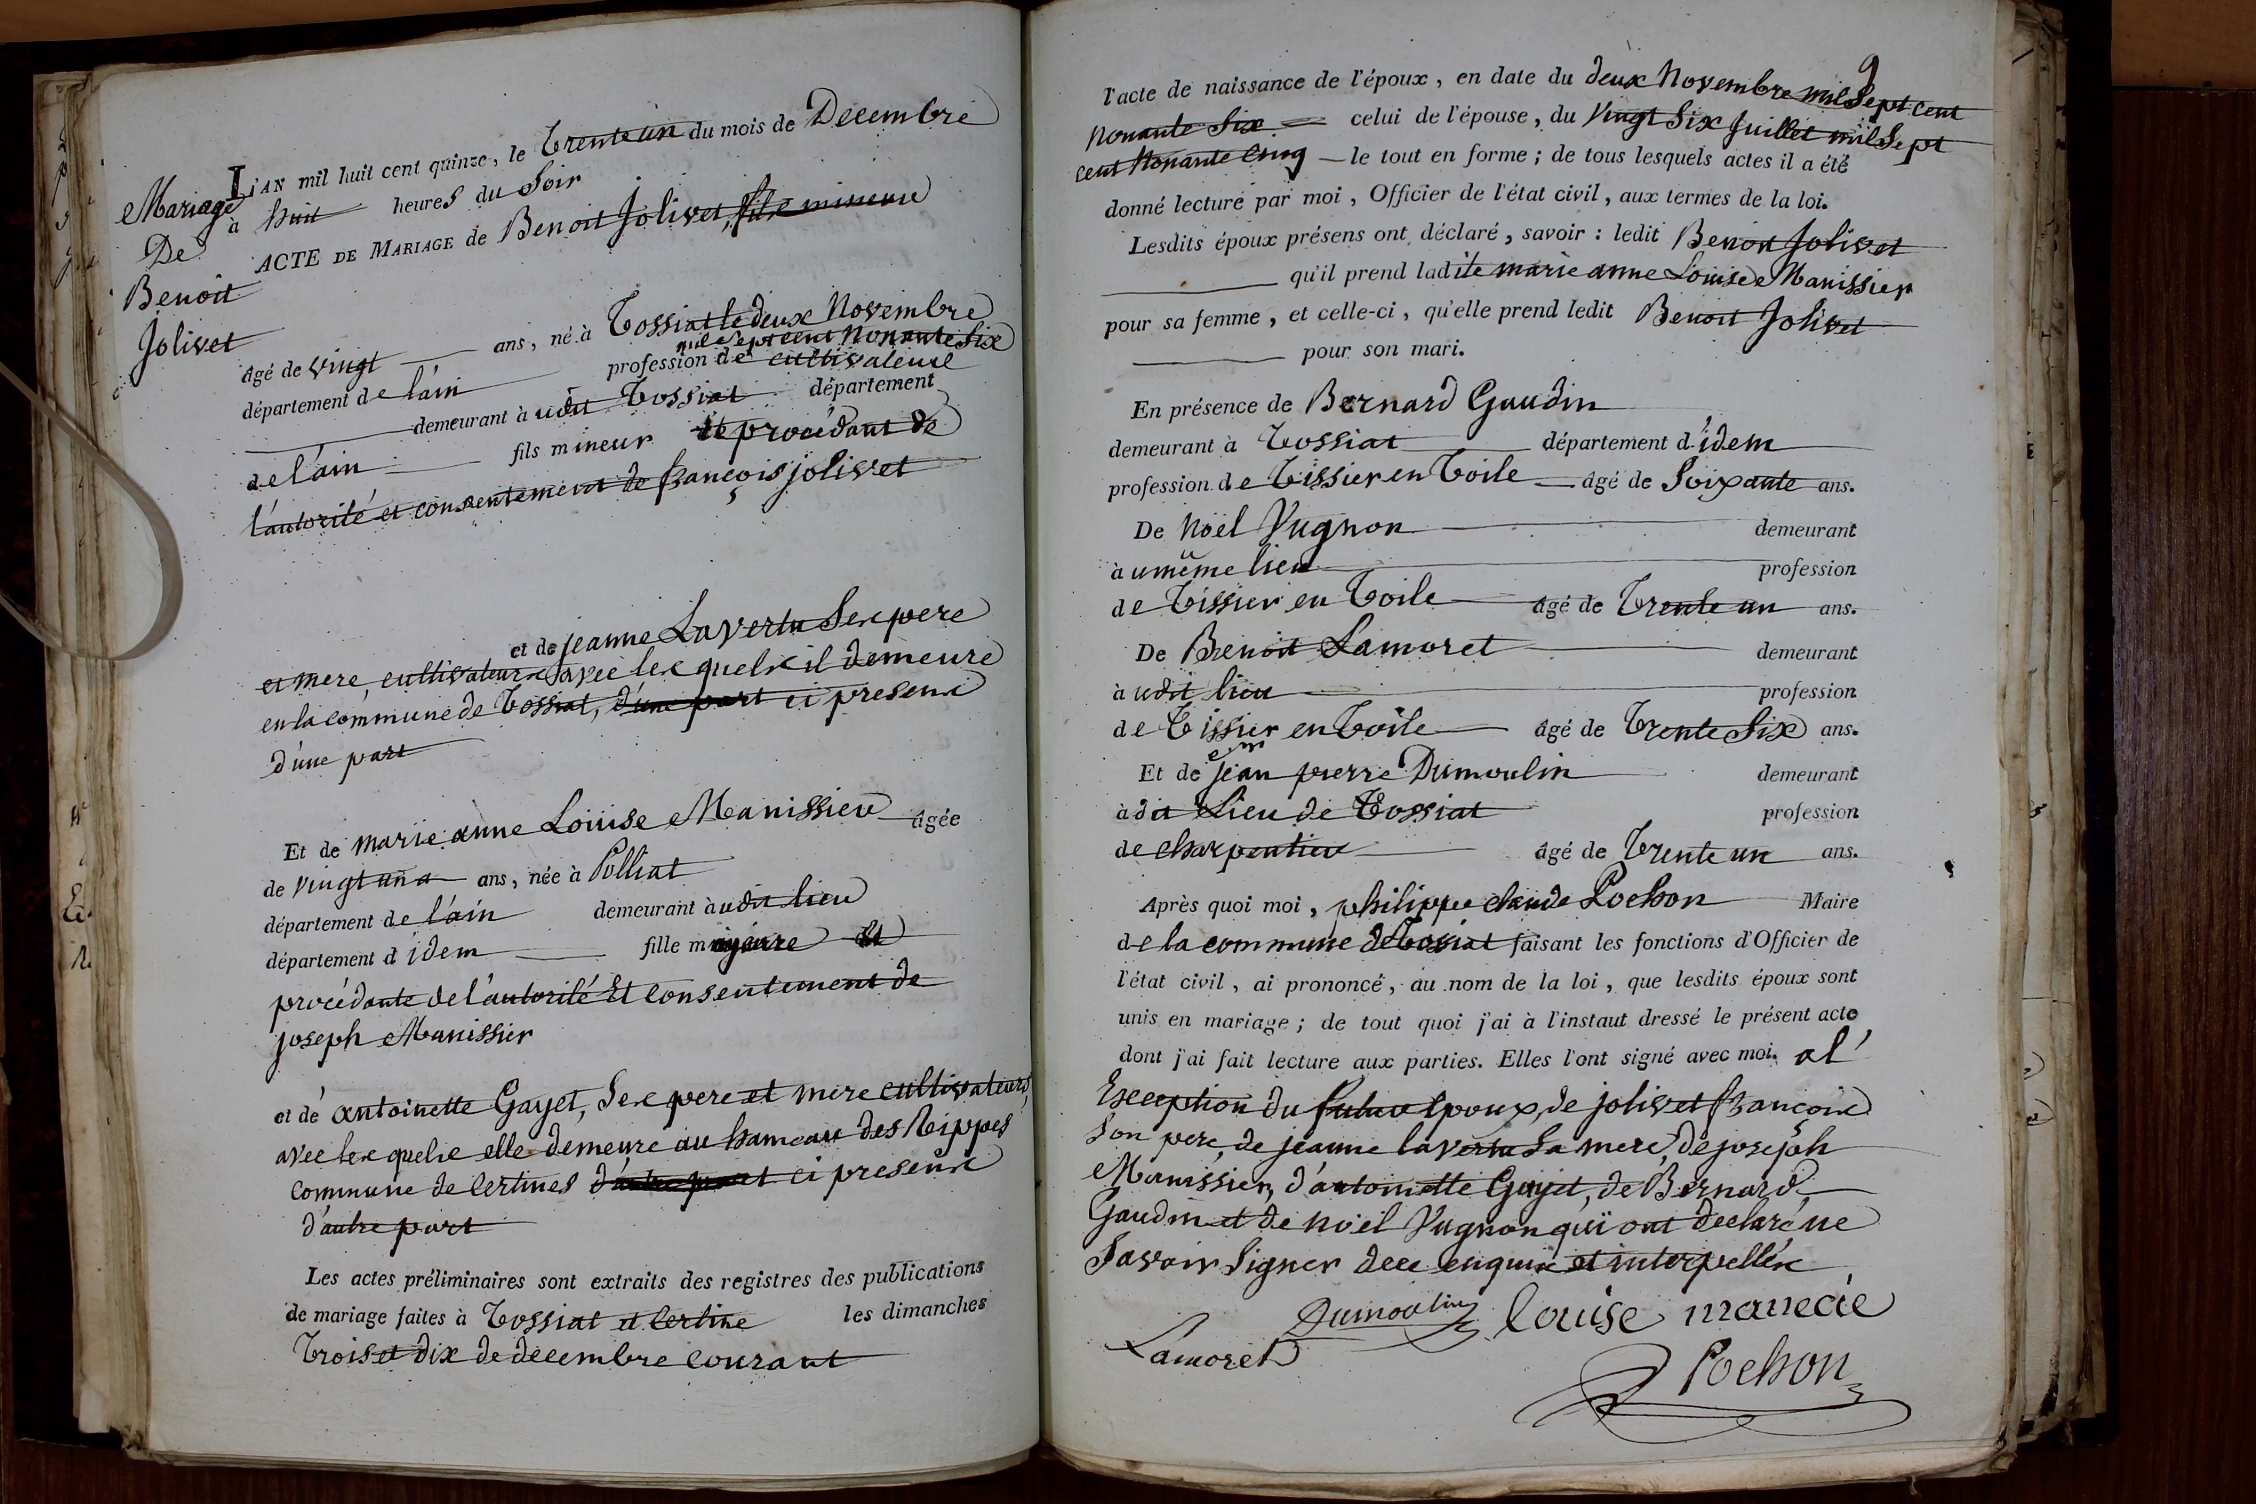 Mariage
De
Benoit
Jolivet
L'AN mil huit cent quinze, le Trente un du mois de Decembre
à huit heures du Soir
ACTE DE MARIAGE de Benoit Jolivet, fils mineur
âgé de vingt ans, né à Tossiat le deux Novembre
mil Sept cent Nonante Six
département de l'ain profession de cultivateur
demeurant à udit Tossiat département
de l'ain fils mineur et procédant de
l'autorité et consentement de françois jolivet
et de jeanne Lavertu Ses pere
et mere, cultivateurs avec les quels il demeure
en la commune de Tossiat, d'une part ci presens
d'une part
Et de marie anne Louise Manissier âgée
de vingt un ans, née à Polliat
département de l'ain demeurant à udit lieu
département d idem fille majeure et
procédante de l'autorité Et Consentement de
joseph Manissier
et de antoinette Gayet, Ses pere et mere cultivateurs,
avec les quels elle demeure au hameau des Rippes
commune de Certines d'autre part ci presens
d'autre part
Les actes préliminaires sont extraits des registres des publications
de mariage faites à Tossiat et Certine les dimanches
Trois et dix de decembre courant
9
l'acte de naissance de l'époux, en date du deux Novembre mil Sept cent
Nonante Six celui de l'épouse, du Vingt Six Juillet mil Sept
cent Nonante Cinq le tout en forme ; de tous lesquels actes il a été
donné lecture par moi, Officier de l'état civil, aux termes de la loi.
Lesdits époux présens ont déclaré, savoir : ledit Benoit Jolivet
qu'il prend ladite marie anne Louise Manissier
pour sa femme, et celle-ci, qu'elle prend ledit Benoit Jolivet
pour son mari.
En présence de Bernard Gaudin
demeurant à Tossiat département d'idem
profession de Tissier en Toile âgé de Soixante ans.
De Noël Vugnon demeurant
à u même lieu profession
de Tissier en Toile âgé de Trente un ans.
De Benoit Lamoret demeurant
à udit lieu profession
de Tissier en Toile âgé de Trente Six ans.
Et de jean pierre Dumoulin demeurant
à dit Lieu de Tossiat profession
de charpentier âgé de Trente un ans.
Après quoi moi, philippe claude Pochon Maire
de la commune de Tossiat faisant les fonctions d'Officier de
l'état civil, ai prononcé, au nom de la loi, que lesdits époux sont
unis en mariage ; de tout quoi j'ai à l'instant dressé le présent acte
dont j'ai fait lecture aux parties. Elles l'ont signé avec moi. a l'
Exception du futur Epoux, de jolivet françois
Son pere, de jeanne lavertu Sa mere, de joseph
Manissier, d'antoinette Gayet, de Bernard
Gaudin et de Noël Vugnon qui ont declaré ne
Savoir Signer de ce enquis et interpellés
Dumoulin louise manecié
Lamoret
Pochon